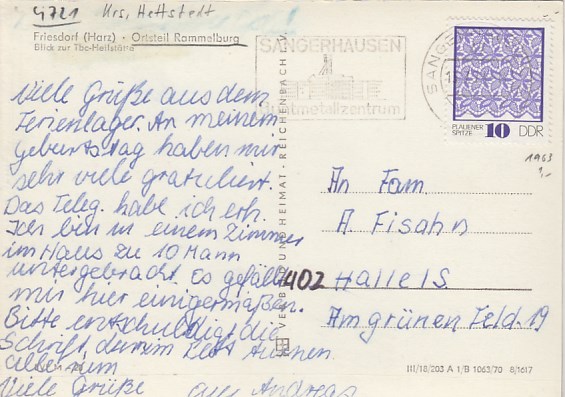 4721 Krs. Hettstedt
Friesdorf (Harz) - Ortsteil Rammelburg
Blick zur Tbc-Heilstätte
Viele Grüße aus dem
Ferienlager. An meinem
Geburtstag haben mir
sehr viele gratuliert.
Das Teleg. habe ich erh.
Ich bin in einem Zimmer
im Haus zu 10 Mann
untergebracht. Es gefällt
mir hier einigermaßen.
Bitte entschuldigt die
Schrift, denn im Bett
alle rum
Viele Grüße aus Andreas
VERBUNDHEIMAT REICHENBACH i. V.
SANGERHAUSEN
Buntmetallzentrum
SANGE
PLAUENER SPITZE 10 DDR
1963
An Fam.
A. Fisahn
402 Halle/S.
Am grünen Feld 19
III/18/203 A 1/B 1063/70 8/1617